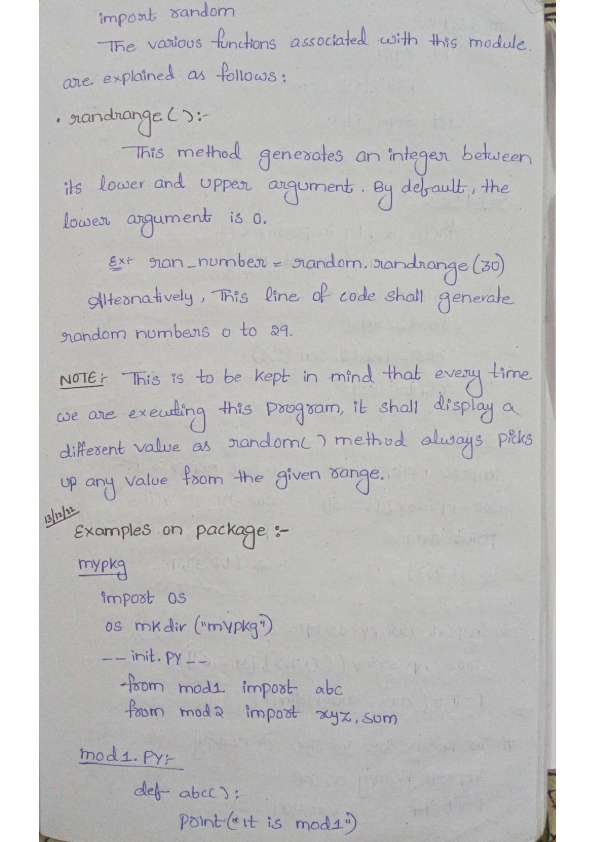 import random
The various functions associated with this module.
are explained as follows:
• randrange():-
This method generates an integer between
its lower and upper argument. By default, the
lower argument is 0.
Ex:- ran_number = random.randrange(30)
Alternatively, This line of code shall generate
random numbers 0 to 29.
NOTE:- This is to be kept in mind that every time
we are executing this program, it shall display a
different value as random() method always picks
up any value from the given range.
13/12/22
Examples on package:-
mypkg
import os
os mkdir ("mypkg")
__init.py__
from mod1 import abc
from mod2 import xyz, sum
mod1.py:-
def abc():
print("it is mod1")